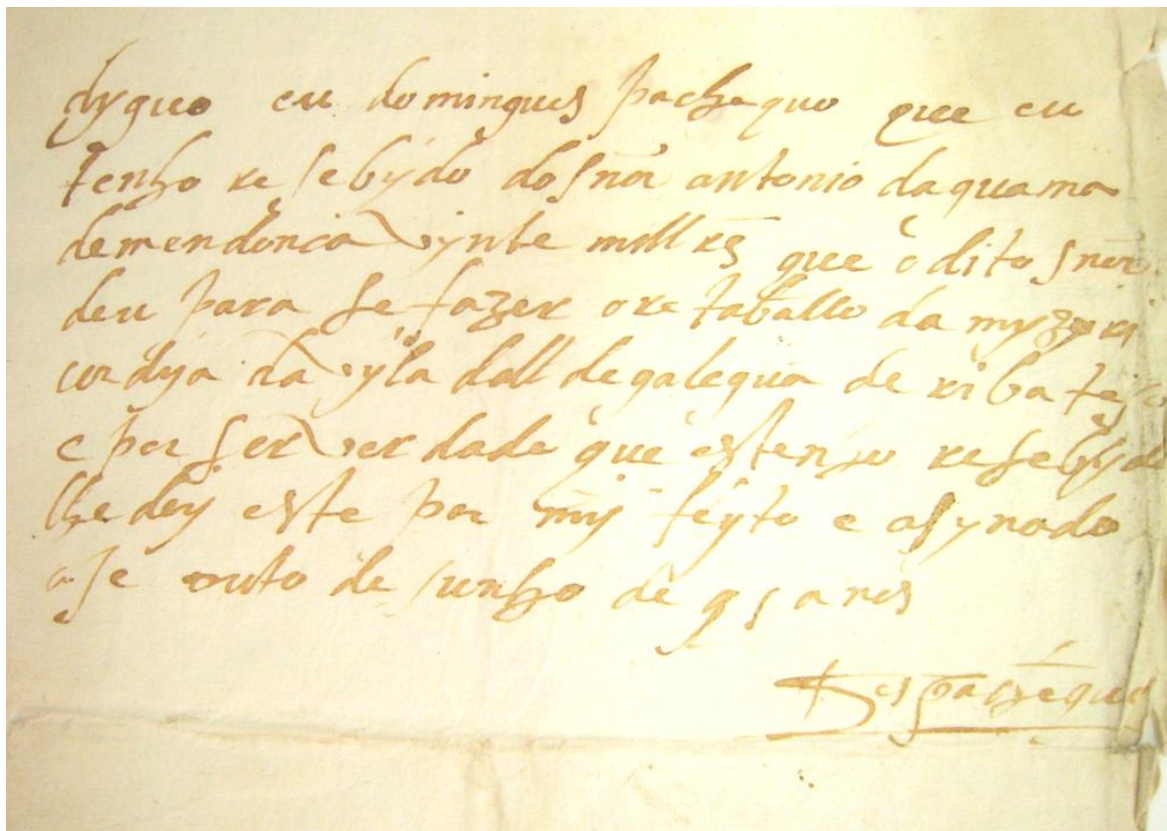 dyguo eu domingues pachequo que eu
tenho resebydo do snõr antonio da quama
de mendonca vynte mill rs que o dito snõr
deu para se fazer o retabollo da myzeri
cordya da vyla dall degalegua de riba tejo
e por ser verdade que os tenho resebydo
lhe dey este por my feyto e asynado
a oito de junho de 95 anos
Dgs pachequo